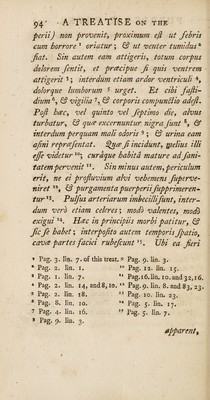 94 A TREATISE ON THE
perii) non provenit, proximum est ut febris
cum horrore ¹ oriatur; & ut venter tumidus ²
fiat. Sin autem eam attigeris, totum corpus
dolorem sentit, et præcipue si quis ventrem
attigerit ³; interdum etiam ardor ventriculi ⁴,
dolorque lumborum ⁵ urget. Et cibi fasti-
dium ⁶, & vigilia ⁷, & corporis compunctio adest.
Post hæc, vel quinto vel septimo die, alvus
turbatur, & quæ excernuntur nigra sunt ⁸, &
interdum perquam mali odoris ⁹; & urina eam
asini repræsentat. Quæ si incidunt, quelus illi
esse videtur ¹⁰; curaque habita mature ad sani-
tatem pervenit ¹¹. Sin minus autem, periculum
erit, ne ei profluvium alvi vehemens superve-
niret ¹², & purgamenta puerperii supprimeren-
tur ¹³. Pulsus arteriarum imbecilli sunt, inter-
dum verò etiam celeres; modò valentes, modò
exigui ¹⁴. Hæc in principiis morbi patitur, &
sic se habet; interposito autem temporis spatio,
cavæ partes faciei rubescunt ¹⁵. Ubi ea sieri
Pag. 3. lin. 7. of this treat. Pag. 9. lin. 3.
Pag. 2. lin. 1. Pag. 12. lin. 15.
Pag. 1. lin. 7. Pag. 16. lin. 10. and 32, 16.
Pag. 2. lin. 14, and 8, 10. Pag. 9. lin. 8. and 83, 23.
Pag. 2. lin. 18. Pag. 10. lin. 23.
Pag. 8. lin. 10. Pag. 5. lin. 17.
Pag. 4. lin. 16. Pag. 5. lin. 7.
Pag. 9. lin. 3.
apparent,